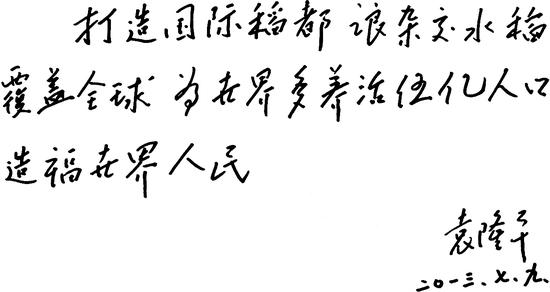 打造国际稻都 让杂交水稻
覆盖全球 为世界多养活伍亿人口
造福世界人民
袁隆平
二〇一三.七.九.